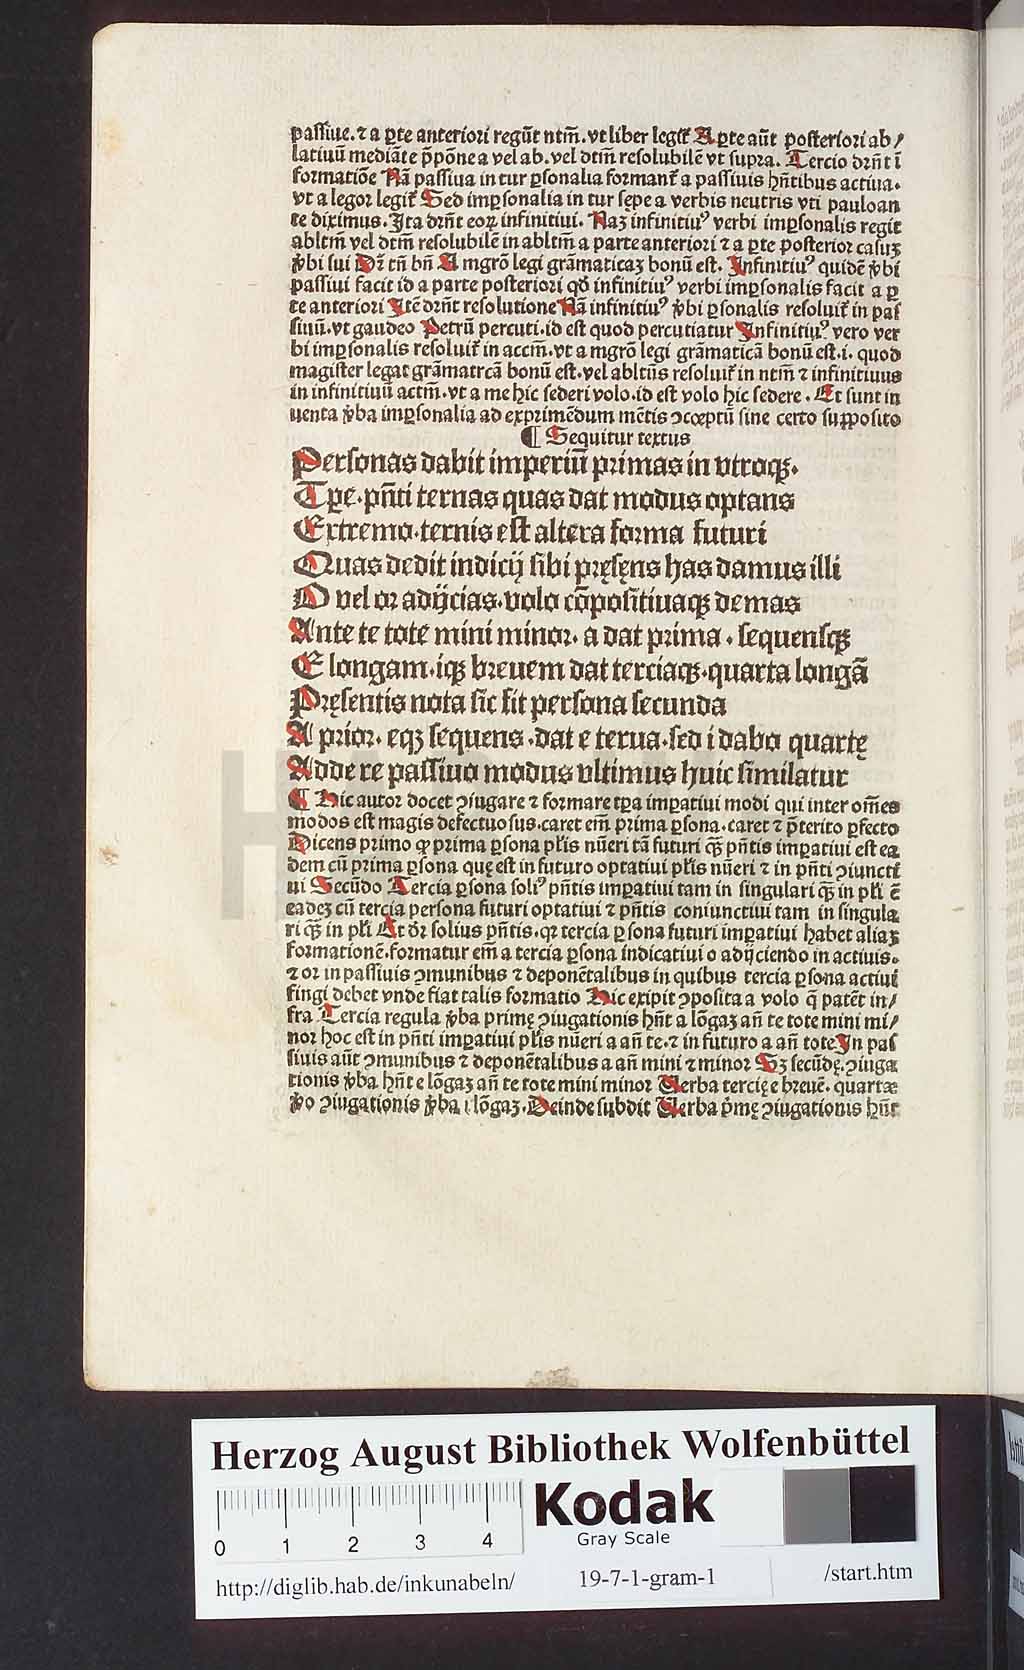 paſſiue. ⁊ a ꝑte anteriori regūt ntm̄. vt liber legit᷑ A ꝑte aūt poſteriori ab /
latiuū mediāte p̄pōne a vel ab. vel dtm̄ reſolubilē vt ſupra. Tercio dr̄nt ī
formatiōe Nā paſſiua in tur ꝑſonalia formant᷑ a paſſiuis hn̄tibus actiua.
vt a legor legit᷑ Sed imꝑſonalia in tur ſepe a verbis neutris vti pauloan
te diximus. Ita dr̄nt eoꝝ infinitiui. Naꝫ infinitiuꝰ verbi imꝑſonalis regit
abltm̄ vel dtm̄ reſolubilē in abltm̄ a parte anteriori ⁊ a ꝑte poſterior caſuꝫ
v̄bi ſui Dr̄ tn̄ bn̄ A mgrō legi grāmaticaꝫ bonū eſt. Infinitiuꝰ quidē v̄bi
paſſiui facit id a parte poſteriori qd̄ infinitiuꝰ verbi imꝑſonalis facit a ꝑ
te anteriori Itē dr̄nt reſolutione Nā infinitiuꝰ v̄bi ꝑſonalis reſoluit᷑ in paſ
ſiuū. vt gaudeo Petrū percuti. id eſt quod percutiatur Infinitiuꝰ vero ver
bi imꝑſonalis reſoluit᷑ in accm̄. vt a mgrō legi grāmaticā bonū eſt. i. quod
magiſter legat grāmatrcā bonū eſt. vel abltūs reſoluit᷑ in ntm̄ ⁊ infinitiuus
in infinitiuū actm̄. vt a me hic ſederi volo. id eſt volo hic ſedere. Et ſunt in
uenta v̄ba imꝑſonalia ad exprimēdum mētis ↄcœptū ſine certo ſuppoſito
¶ Sequitur textus
Perſonas dabit imperiū primas in vtroqꝫ.
Tꝑe. pn̄ti ternas quas dat modus optans
Extremo. ternis eſt altera forma futuri
Quas dedit indicij ſibi pręſęns has damus illi
O vel or adijcias. volo cōpoſitiuaqꝫ demas
Ante te tote mini minor. a dat prima. ſequenſqꝫ
E longam. iqꝫ breuem dat terciaqꝫ. quarta longā
Pręſentis nota ſic fit perſona ſecunda
A prior. eqꝫ ſequens. dat e terua. ſed i dabo quartę
Adde re paſſiuo modus vltimus huic ſimilatur
¶ Hic autor docet ↄiugare ⁊ formare tꝑa imꝑatiui modi qui inter om̄es
modos eſt magis defectuoſus. caret em̄ prima ꝑſona. caret ⁊ p̄terito ꝑfecto
Dicens primo ꝙ prima ꝑſona pl̄is nūeri tā futuri qꝫ̄ pn̄tis imꝑatiui eſt ea
dem cū prima ꝑſona quę eſt in futuro optatiui pl̄is nūeri ⁊ in pn̄ti ↄiuncti
ui Secūdo Tercia ꝑſona ſoliꝰ pn̄tis imꝑatiui tam in ſingulari qꝫ̄ in pl̄i ē
eadeꝫ cū tercia perſona futuri optatiui ⁊ pn̄tis coniunctiui tam in ſingula
ri qꝫ̄ in pl̄i Et dr̄ ſolius pn̄tis. qꝛ tercia ꝑſona futuri imꝑatiui habet aliaꝫ
formationē. formatur em̄ a tercia ꝑſona indicatiui o adijciendo in actiuis.
⁊ or in paſſiuis ↄmunibus ⁊ deponētalibus in quibus tercia ꝑſona actiui
fingi debet vnde fiat talis formatio Hic exipit ↄpoſita a volo q̄ patēt in/
fra Tercia regula v̄ba primę ↄiugationis hn̄t a lōgaꝫ an̄ te tote mini mi/
nor hoc eſt in pn̄ti imꝑatiui pl̄is nūeri a an̄ te. ⁊ in futuro a an̄ tote In paſ
ſiuis aūt ↄmunibus ⁊ deponētalibus a an̄ mini ⁊ minor Sꝫ ſecūdę. ↄiuga
tionis v̄ba hn̄t e lōgaꝫ an̄ te tote mini minor Verba tercię e breuē. quartæ
v̄o ↄiugationis v̄ba i lōgaꝫ. Deinde ſubdit Verba p̄mę ↄiugationis hn̄t
Herzog August Bibliothek Wolfenbüttel
0 1 2 3 4
Kodak
Gray Scale
http://diglib.hab.de/inkunabeln/ 19-7-1-gram-1 /start.htm